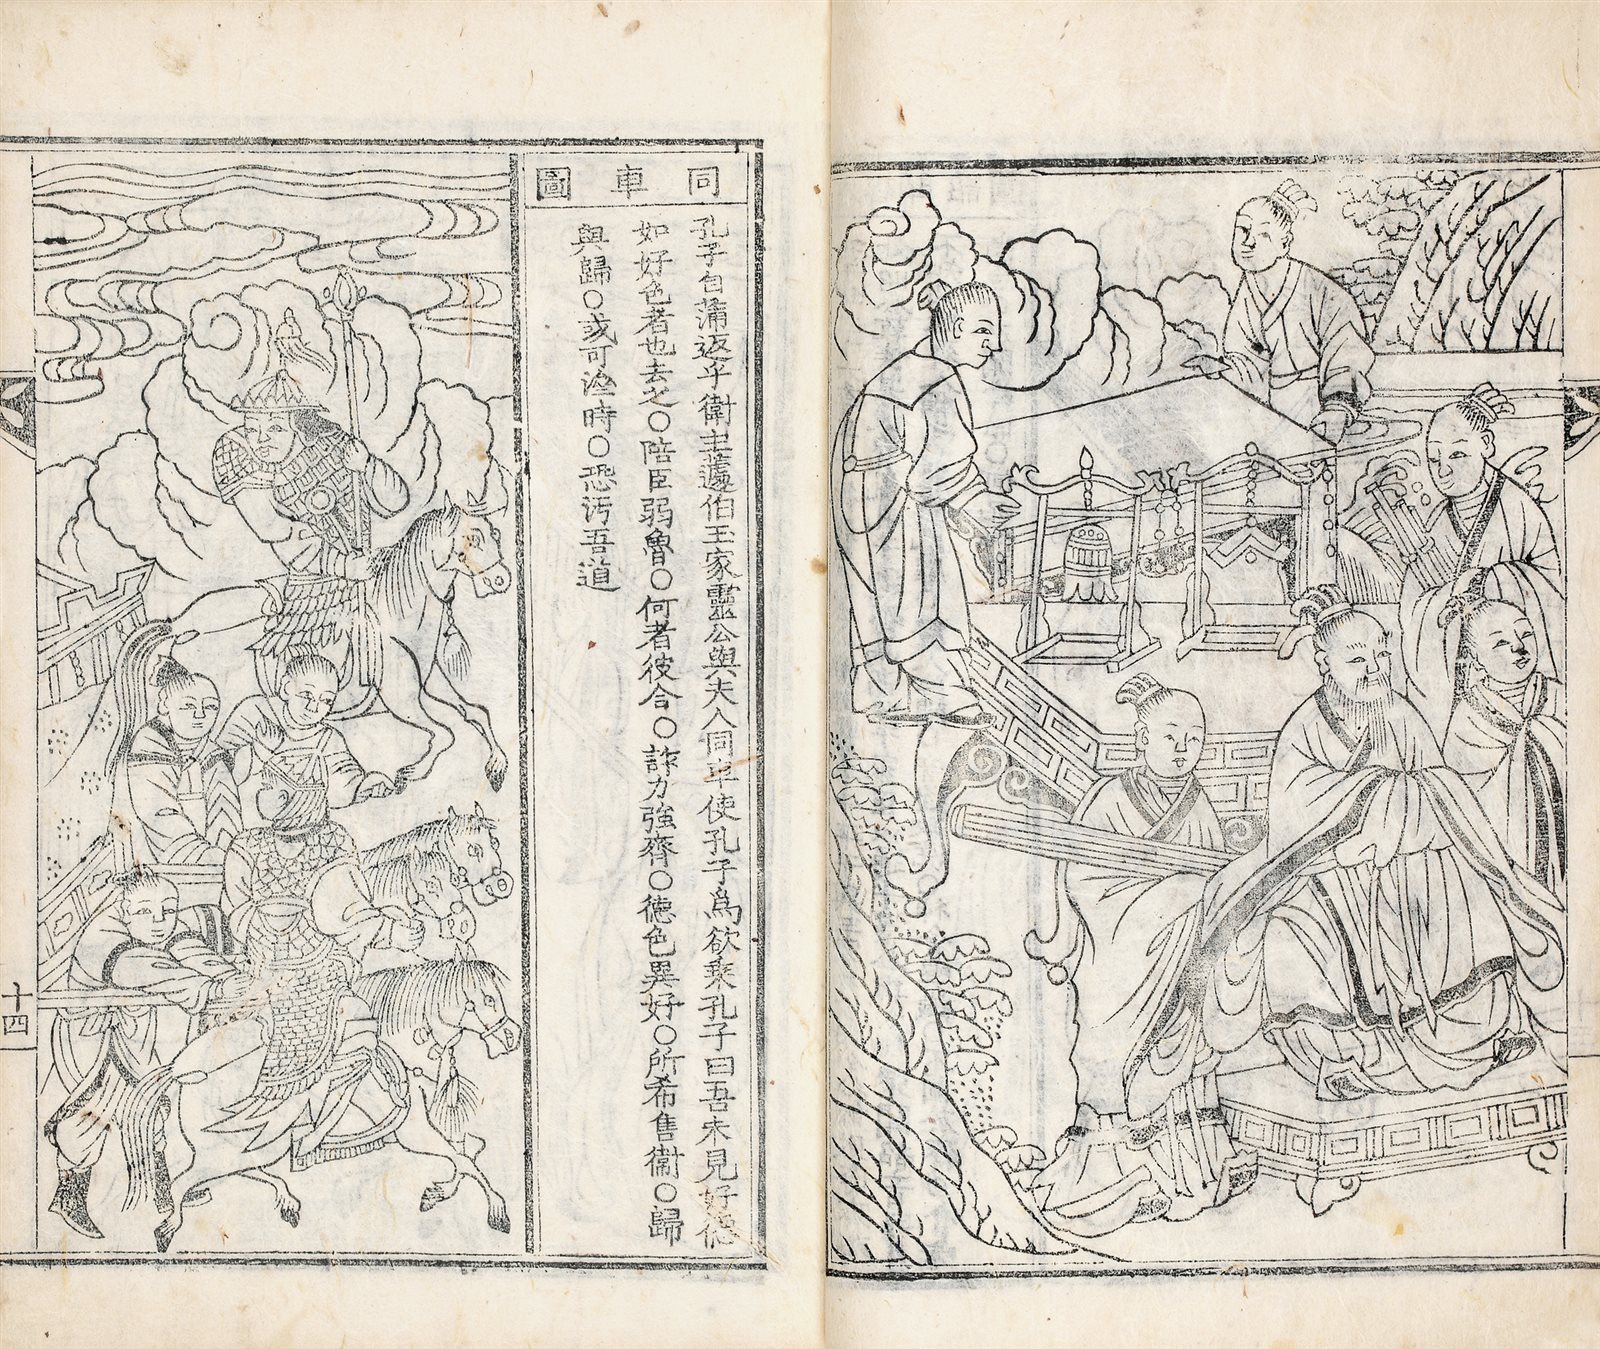 同車圖
孔子自蒲返乎衛主蘧伯玉家靈公與夫人同車使孔子爲欲乘孔子曰吾未見好德
如好色者也去之〇陪臣弱魯〇何者彼合〇詐力強齊〇德色異好〇所希售衛〇歸
與歸〇或可淦時〇恐汚吾道
十四